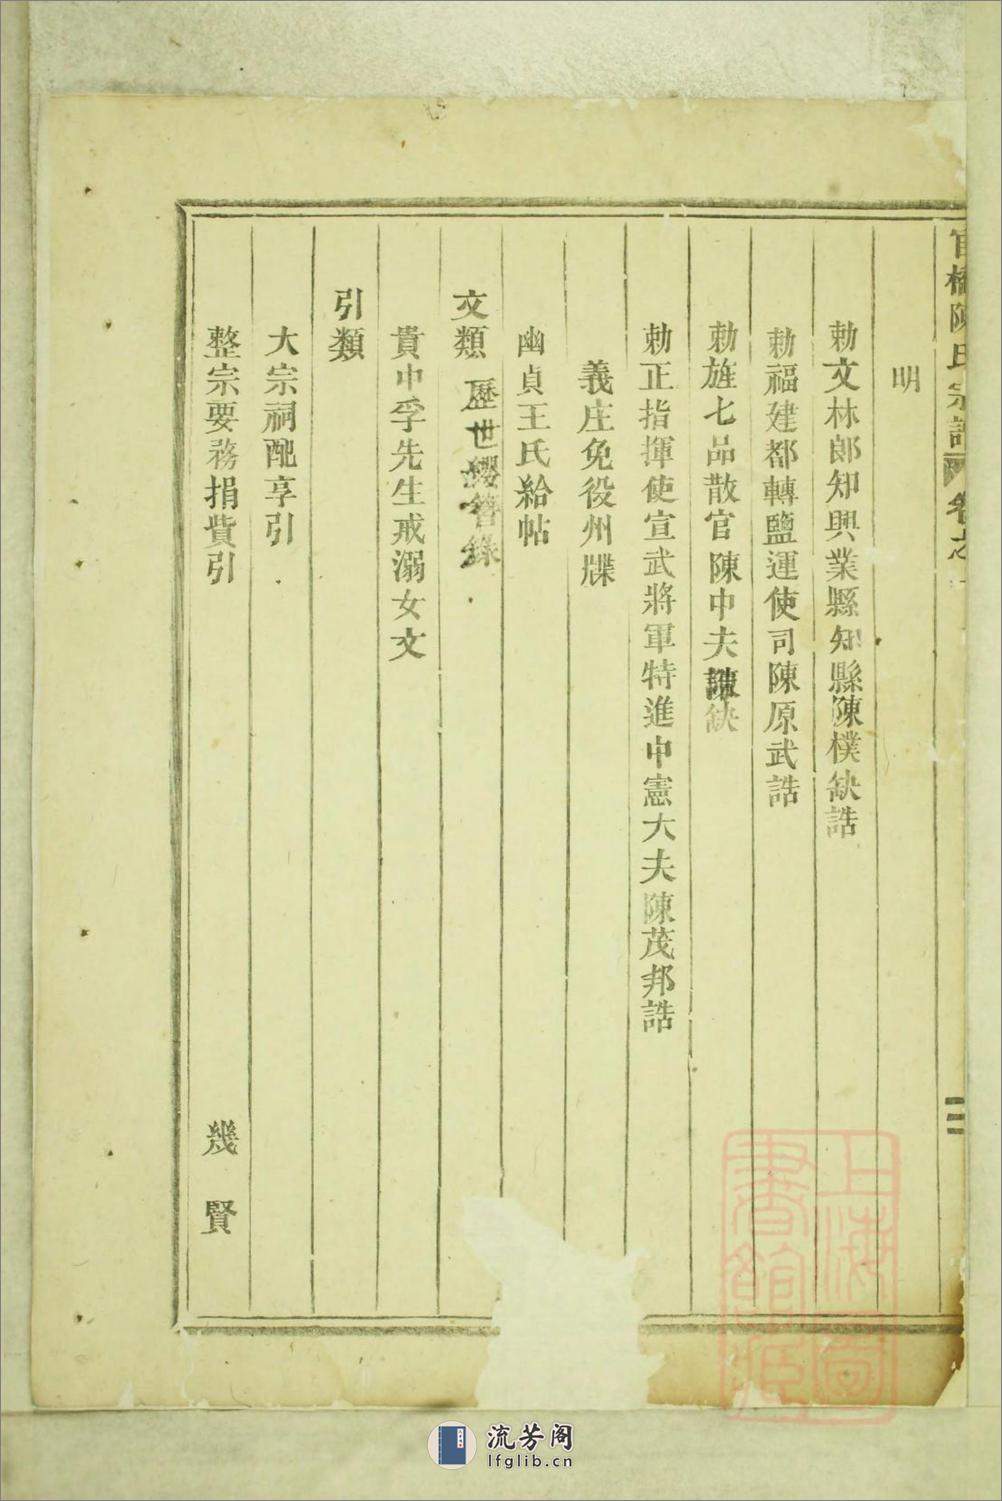 官橋陳氏宗譜 卷之一
二
明
勅文林郎知興業縣知縣陳樸缺誥
勅福建都轉鹽運使司陳原武誥
勅旌七品散官陳中夫 缺
勅正指揮使宣武將軍特進中憲大夫陳茂邦誥
義庄免役州牒
幽貞王氏給帖
文類 歷世纓簪錄
貴中孚先生戒溺女文
引類
大宗祠配享引
整宗要務捐貲引 幾賢
上海圖書館藏
流芳阁
lfglib.cn